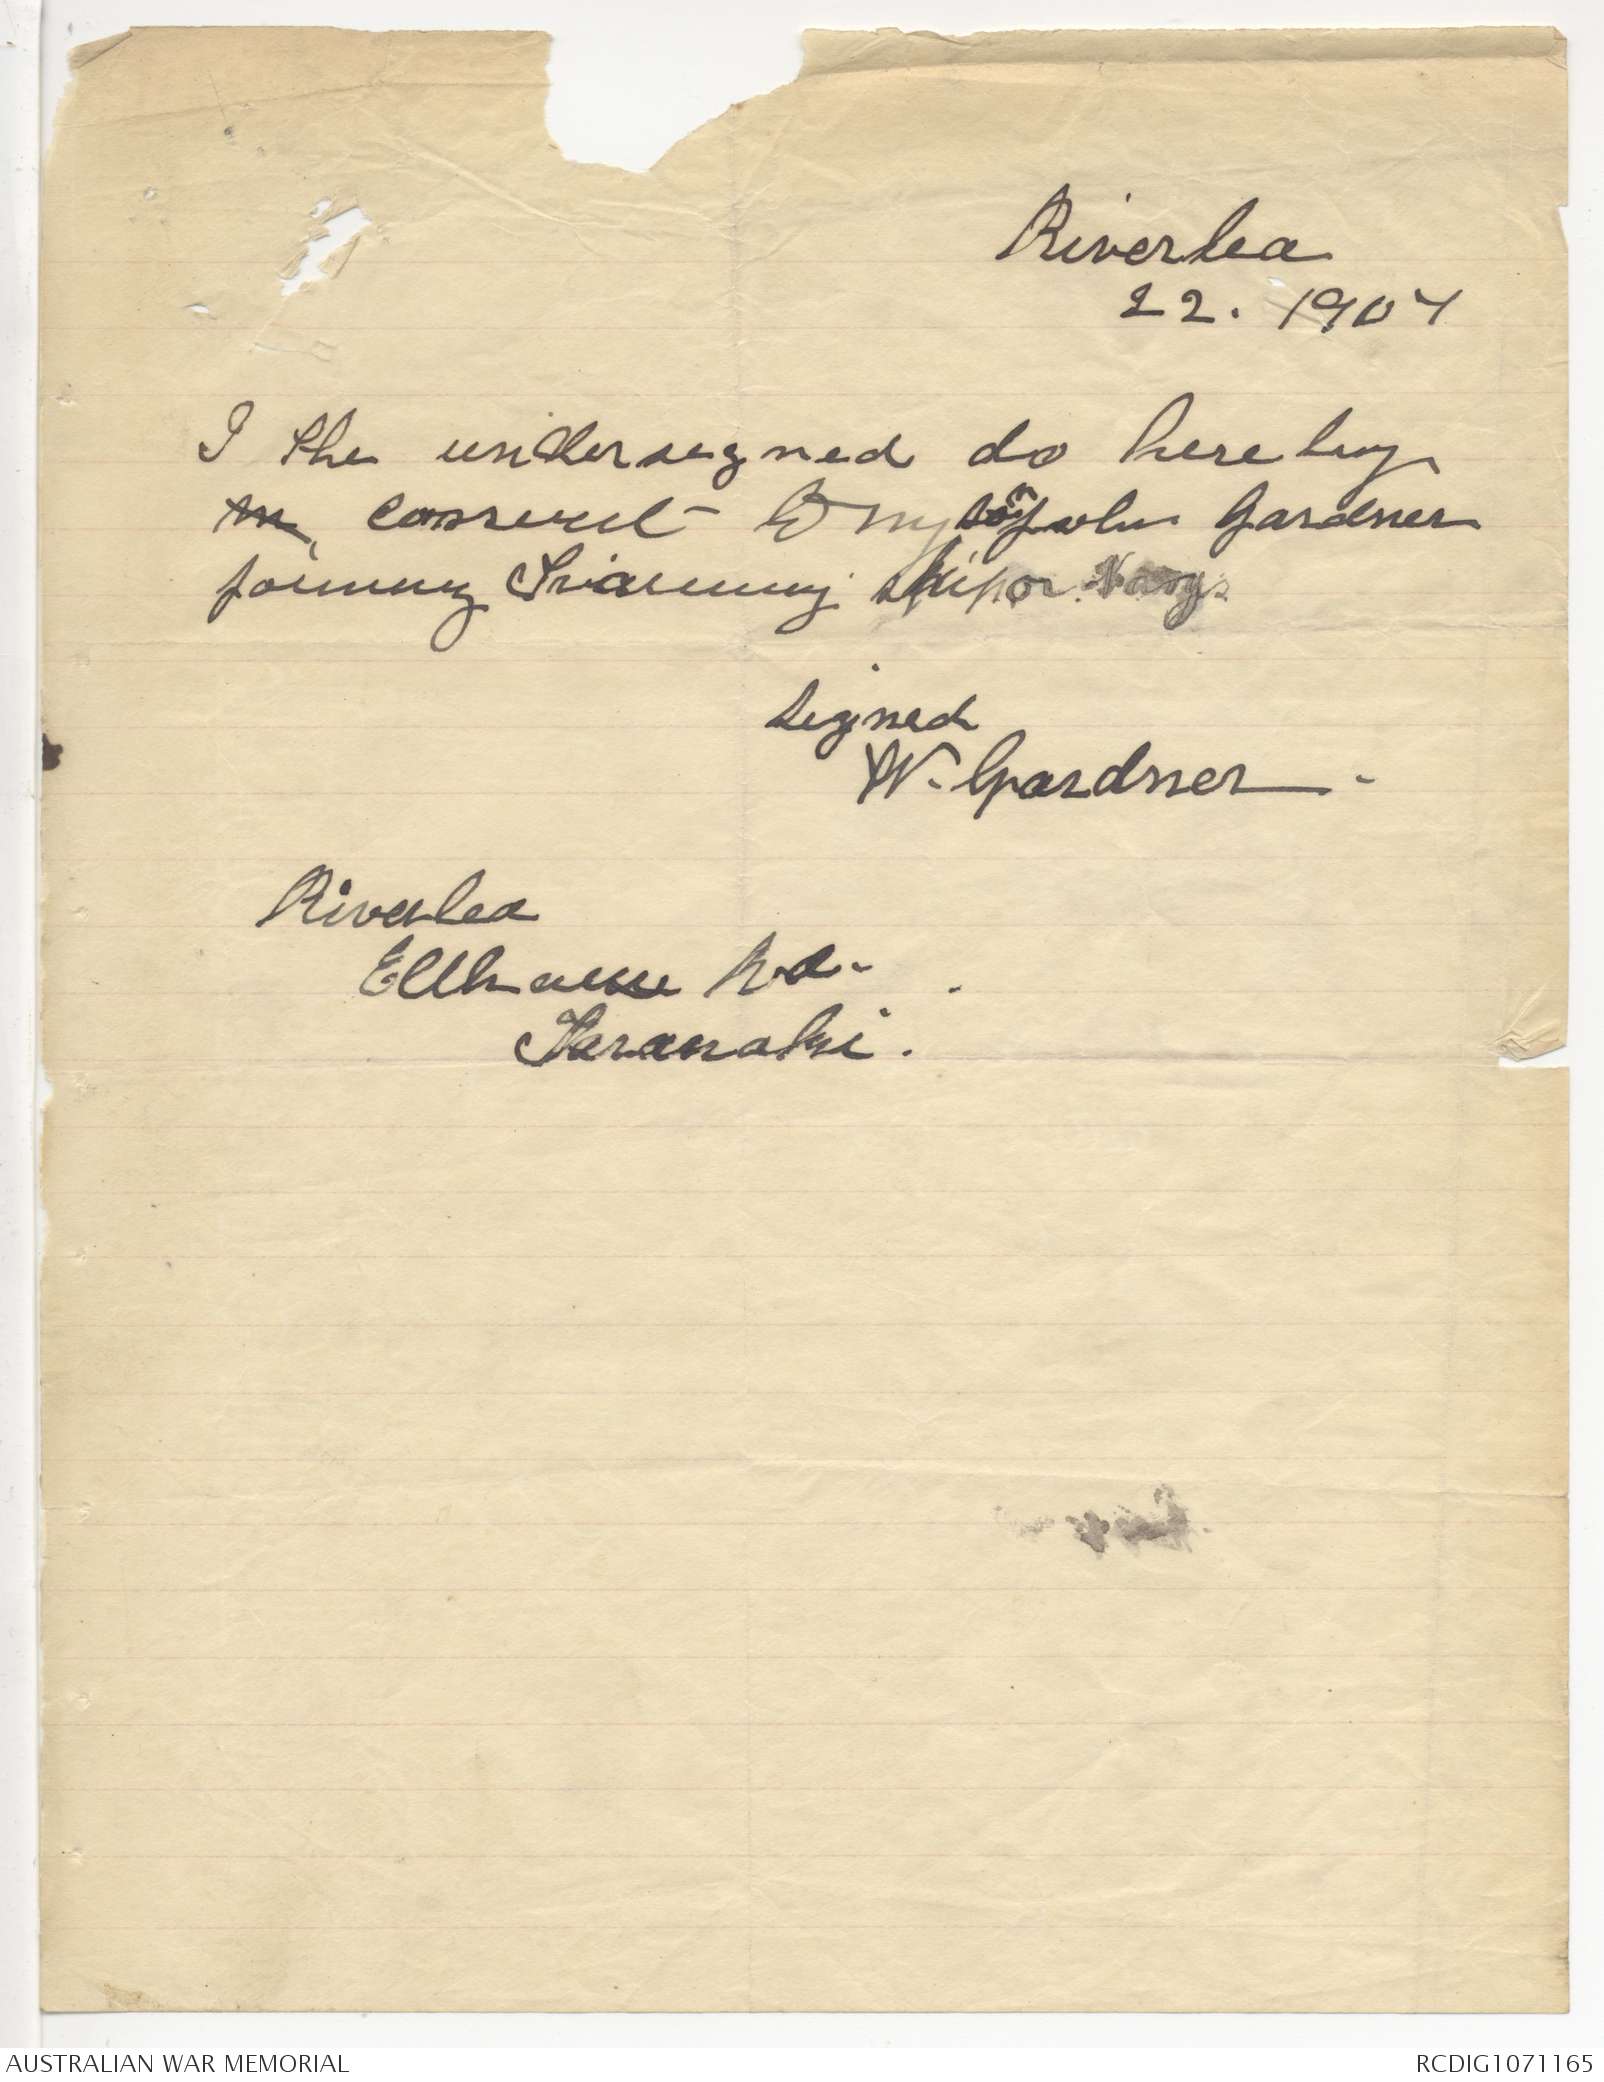 Riverlea
22. 1907
I the undersigned do hereby
consent to my son John Gardner
joining Training ship or Navy.
Signed
W. Gardner.
Riverlea
Eltham Rd.
Taranaki.
AUSTRALIAN WAR MEMORIAL
RCDIG1071165